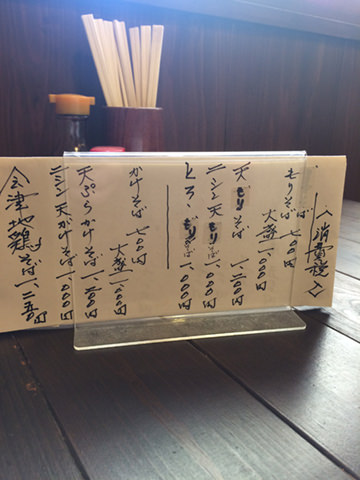 〈消費税入〉
もりそば 七〇〇円
大盛 一、〇〇〇円
天もりそば 一、二〇〇円
ニシン天もりそば 一、〇〇〇円
とろろもりそば 一、〇〇〇円
かけそば 七〇〇円
大盛 一、〇〇〇円
天ぷらかけそば 一、二〇〇円
ニシン天かけそば 一、〇〇〇円
会津地鶏そば 一、二五〇円